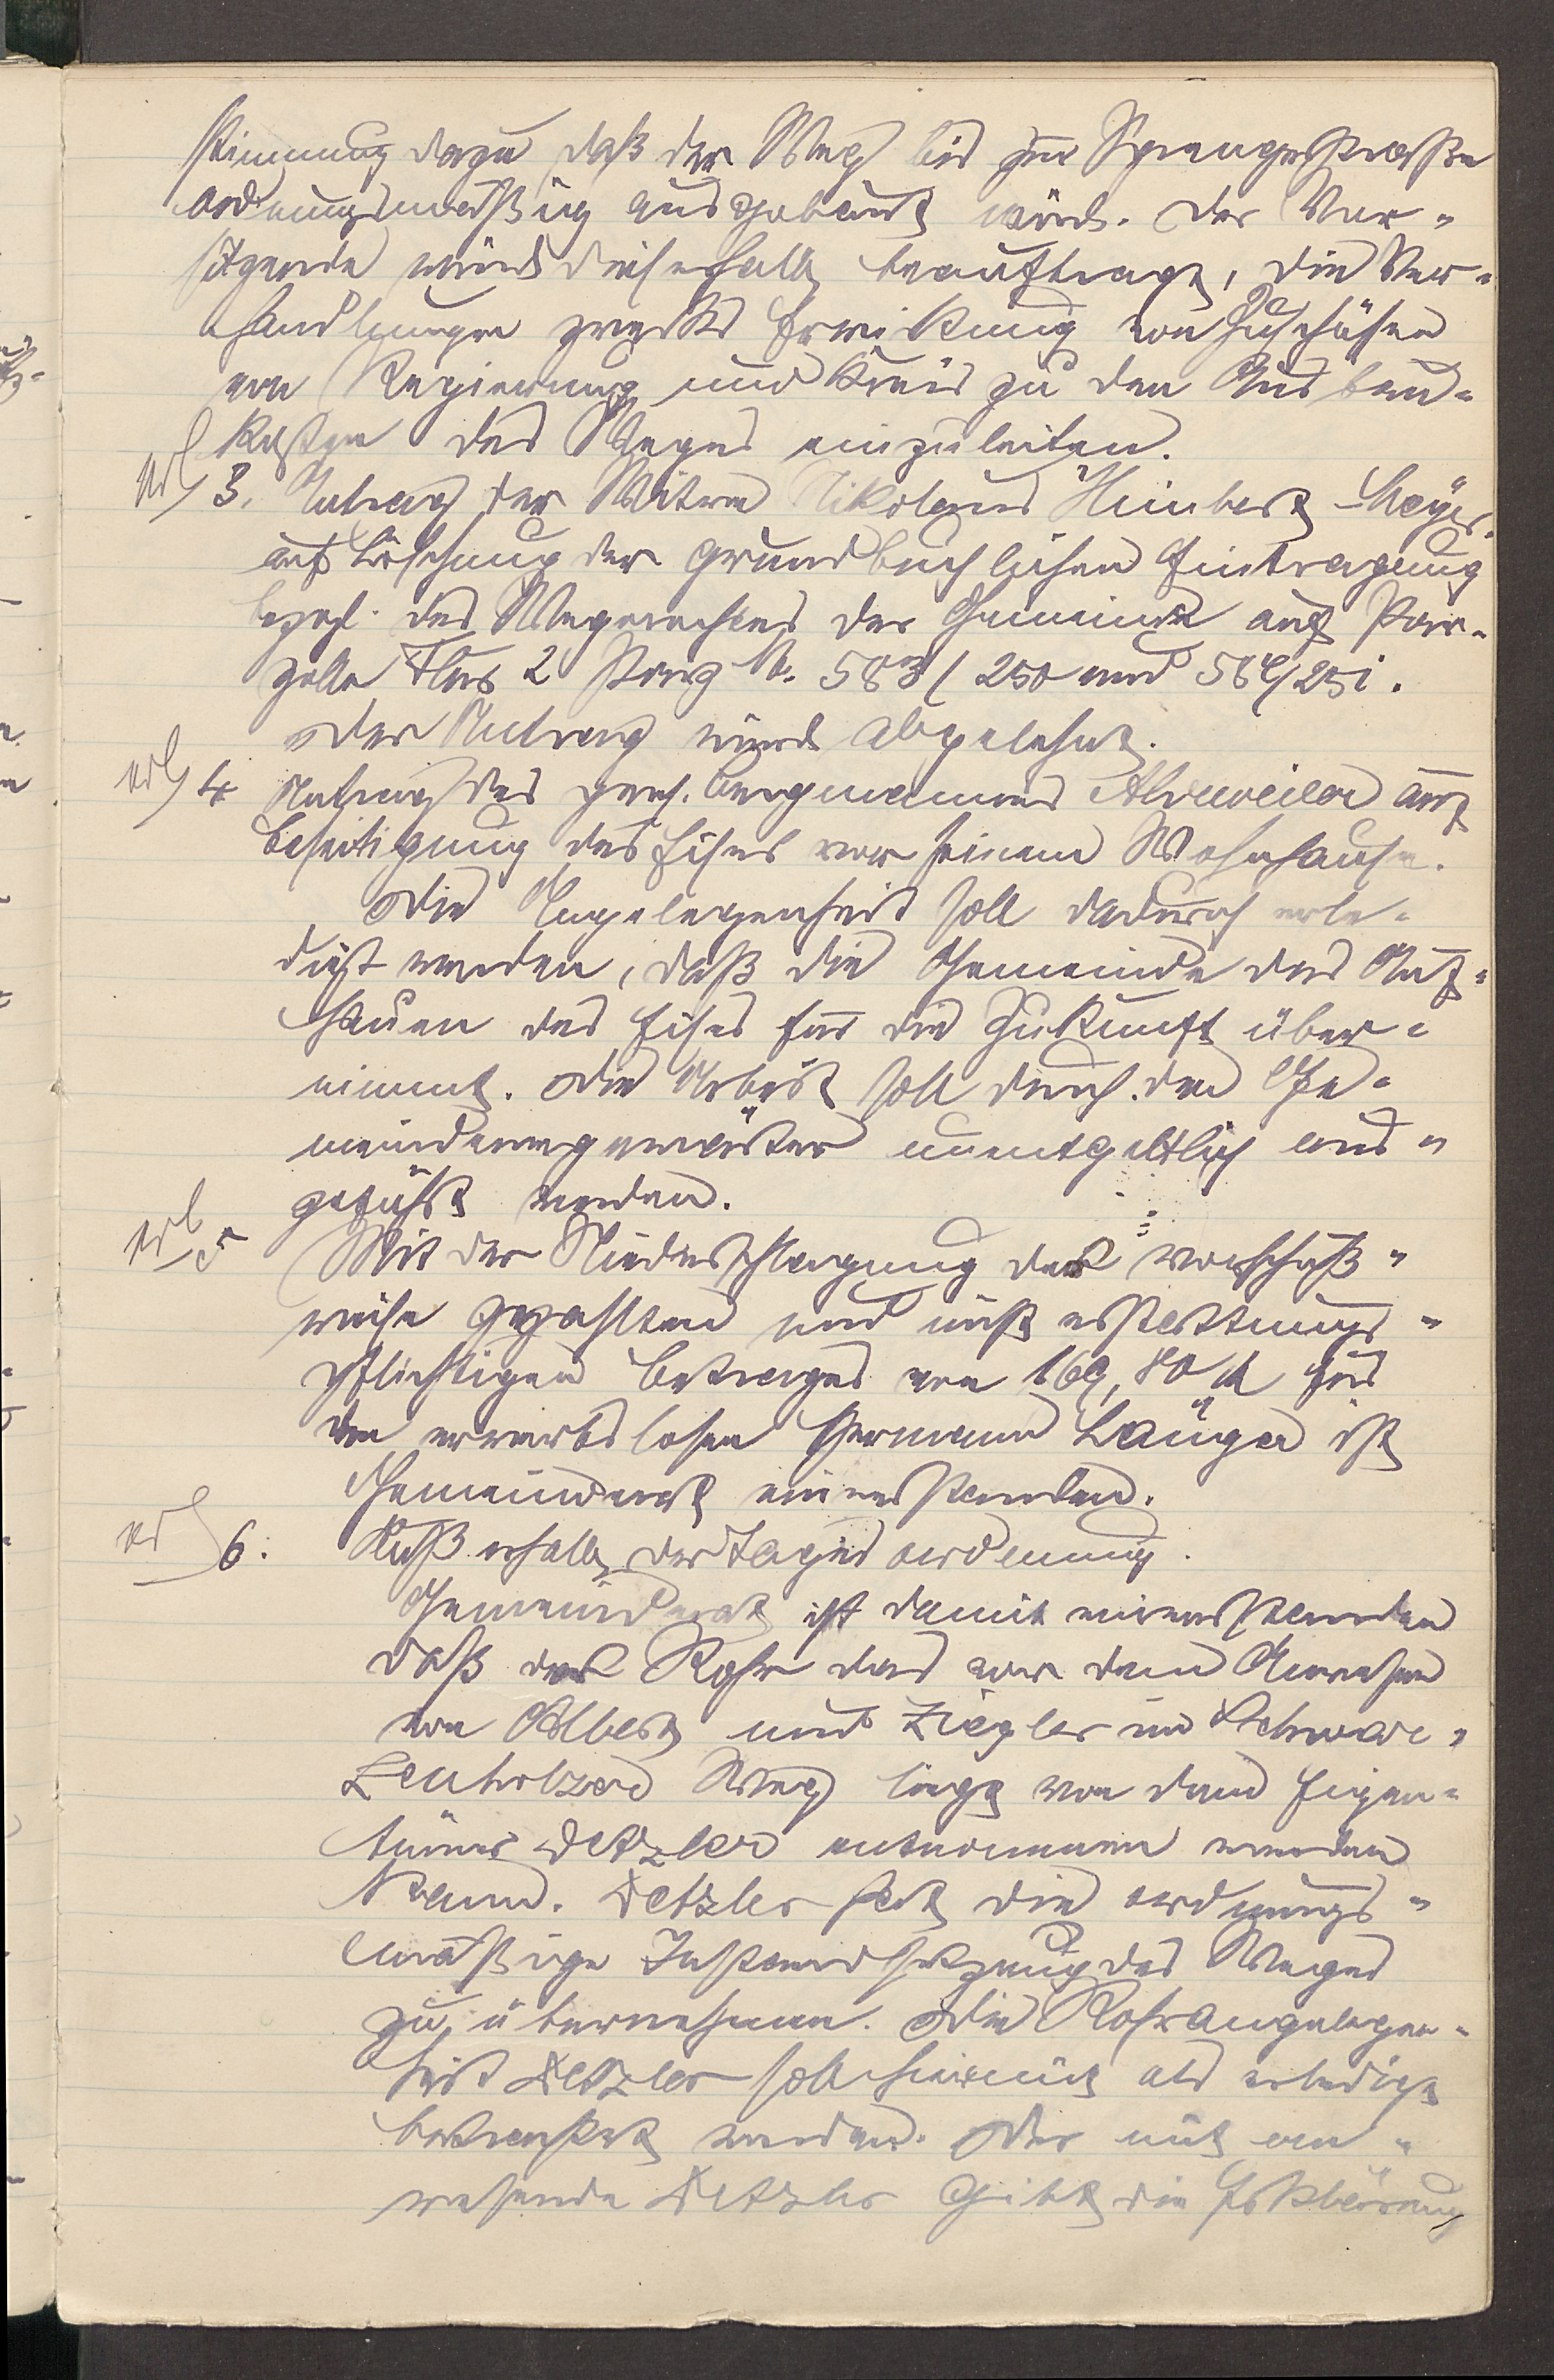 stimmung dazu daß der Weg bis zur Sprengerstraße
ordnungsmäßig ausgebaut wird. Der Vor-
sitzende wird dieserhalb beauftragt, die Ver-
handlungen zwecks Erwirkung von Zuschüssen
von Regierung und Kreis zu den Ausbau-
kosten des Weges einzuleiten.
erl 3. Antrag der Witwe Nikolaus Humbert-Meyer
auf Löschung der grundbuchlichen Eintragung
bezgl. des Wegerechtes der Gemeinde auf Par-
zelle Flur 2 Parz Nr. 583/250 und 584/251.
Der Antrag wird abgelehnt.
erl 4 Antrag des gen. Bergmannes Ahrweiler auf
Beseitigung des Eises vor seinem Wohnhause.
Die Angelegenheit soll dadurch erle-
digt werden, daß die Gemeinde das Auf-
hauen des Eises für die Zukunft über-
nimmt. Die Arbeit soll durch den Ge-
meindewegewärter unentgeltlich aus-
geführt werden.
erl 5 Mit der Niederschlagung des vorschuß-
weise gezahlten und nicht erstattungs-
pflichtigen Betrages von 169,80 M für
den erwerbslosen Hermann Länger ist
Gemeinderat einverstanden.
erl 6. Außerhalb der Tagesordnung.
Gemeinderat ist damit einverstanden
daß das Rohr das vor dem Anwesen
von Albert und Ziegler im Schwar-
zenholzer Weg liegt von dem Eigen-
tümer Detzler entnommen werden
kann. Detzler hat die ordnungs-
mäßige Instandsetzung des Weges
zu übernehmen. Die Rohrangelegen-
heit Detzler soll hiermit als erledigt
betrachtet werden. Der mit an-
wesende Detzler gibt die Erklärung